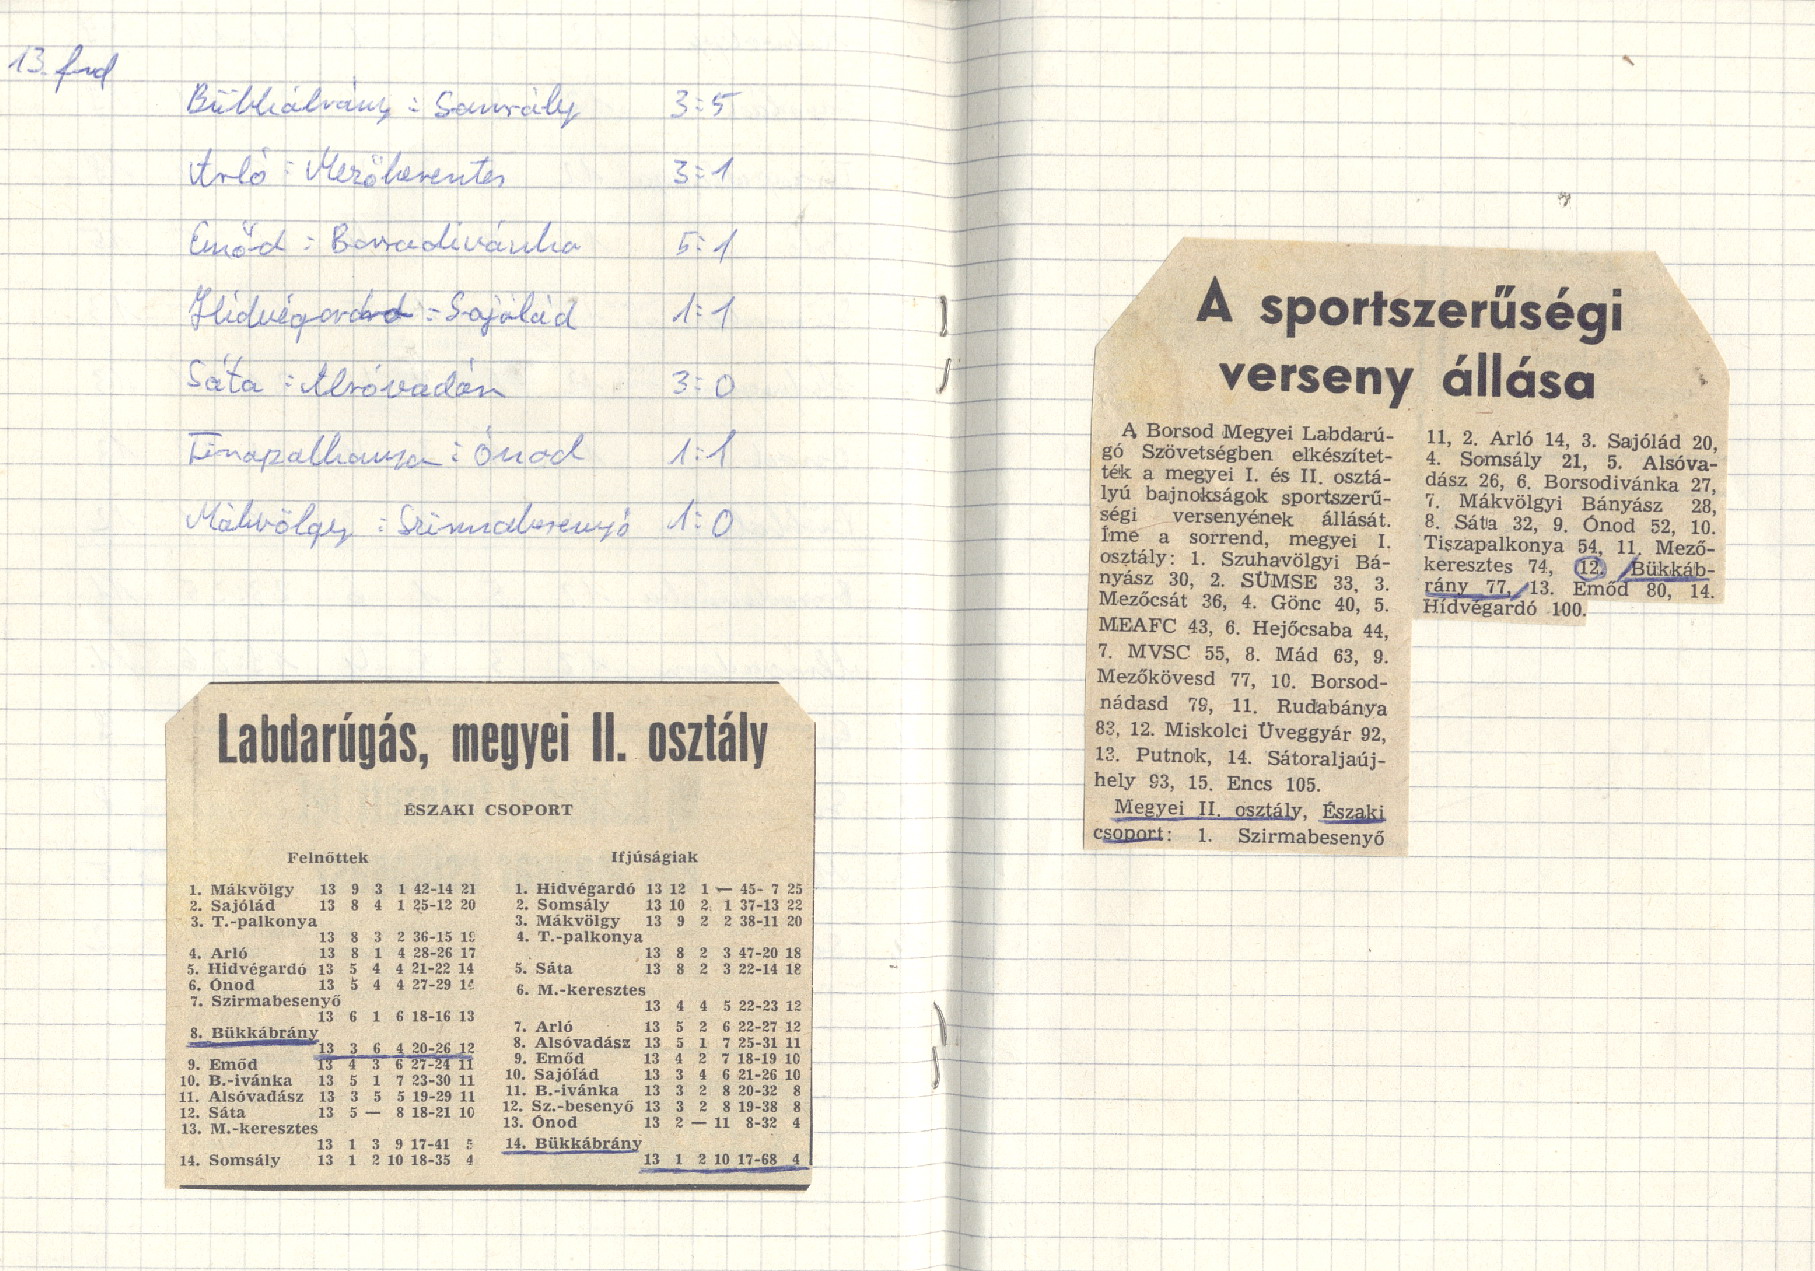 13. frd
Bükkábrány : Somsály 3:5
Arló : Mezőkeresztes 3:1
Emőd : Borsodivánka 5:1
Hídvégardó : Sajólád 1:1
Sáta : Alsóvadász 3:0
Tiszapalkonya : Ónod 1:1
Mákvölgy : Szirmabesenyő 1:0
Labdarúgás, megyei II. osztály
ÉSZAKI CSOPORT
Felnőttek
1. Mákvölgy 13 9 3 1 42-14 21
2. Sajólád 13 8 4 1 25-12 20
3. T.-palkonya
13 8 3 2 36-15 19
4. Arló 13 8 1 4 28-26 17
5. Hidvégardó 13 5 4 4 21-22 14
6. Ónod 13 5 4 4 27-29 14
7. Szirmabesenyő
13 6 1 6 18-16 13
8. Bükkábrány
13 3 6 4 20-26 12
9. Emőd 13 4 3 6 27-24 11
10. B.-ivánka 13 5 1 7 23-30 11
11. Alsóvadász 13 3 5 5 19-29 11
12. Sáta 13 5 — 8 18-21 10
13. M.-keresztes
13 1 3 9 17-41 5
14. Somsály 13 1 2 10 18-35 4
Ifjúságiak
1. Hidvégardó 13 12 1 — 45- 7 25
2. Somsály 13 10 2 1 37-13 22
3. Mákvölgy 13 9 2 2 38-11 20
4. T.-palkonya
13 8 2 3 47-20 18
5. Sáta 13 8 2 3 22-14 18
6. M.-keresztes
13 4 4 5 22-23 12
7. Arló 13 5 2 6 22-27 12
8. Alsóvadász 13 5 1 7 25-31 11
9. Emőd 13 4 2 7 18-19 10
10. Sajólád 13 3 4 6 21-26 10
11. B.-ivánka 13 3 2 8 20-32 8
12. Sz.-besenyő 13 3 2 8 19-38 8
13. Ónod 13 2 — 11 8-32 4
14. Bükkábrány
13 1 2 10 17-68 4
A sportszerűségi
verseny állása
A Borsod Megyei Labdarú-
gó Szövetségben elkészítet-
ték a megyei I. és II. osztá-
lyú bajnokságok sportszerű-
ségi versenyének állását.
Íme a sorrend, megyei I.
osztály: 1. Szuhavölgyi Bá-
nyász 30, 2. SÜMSE 33, 3.
Mezőcsát 36, 4. Gönc 40, 5.
MEAFC 43, 6. Hejőcsaba 44,
7. MVSC 55, 8. Mád 63, 9.
Mezőkövesd 77, 10. Borsod-
nádasd 79, 11. Rudabánya
83, 12. Miskolci Üveggyár 92,
13. Putnok, 14. Sátoraljaúj-
hely 93, 15. Encs 105.
Megyei II. osztály, Északi
csoport: 1. Szirmabesenyő
11, 2. Arló 14, 3. Sajólád 20,
4. Somsály 21, 5. Alsóva-
dász 26, 6. Borsodivánka 27,
7. Mákvölgyi Bányász 28,
8. Sáta 32, 9. Ónod 52, 10.
Tiszapalkonya 54, 11. Mező-
keresztes 74, 12. Bükkáb-
rány 77, 13. Emőd 80, 14.
Hídvégardó 100.